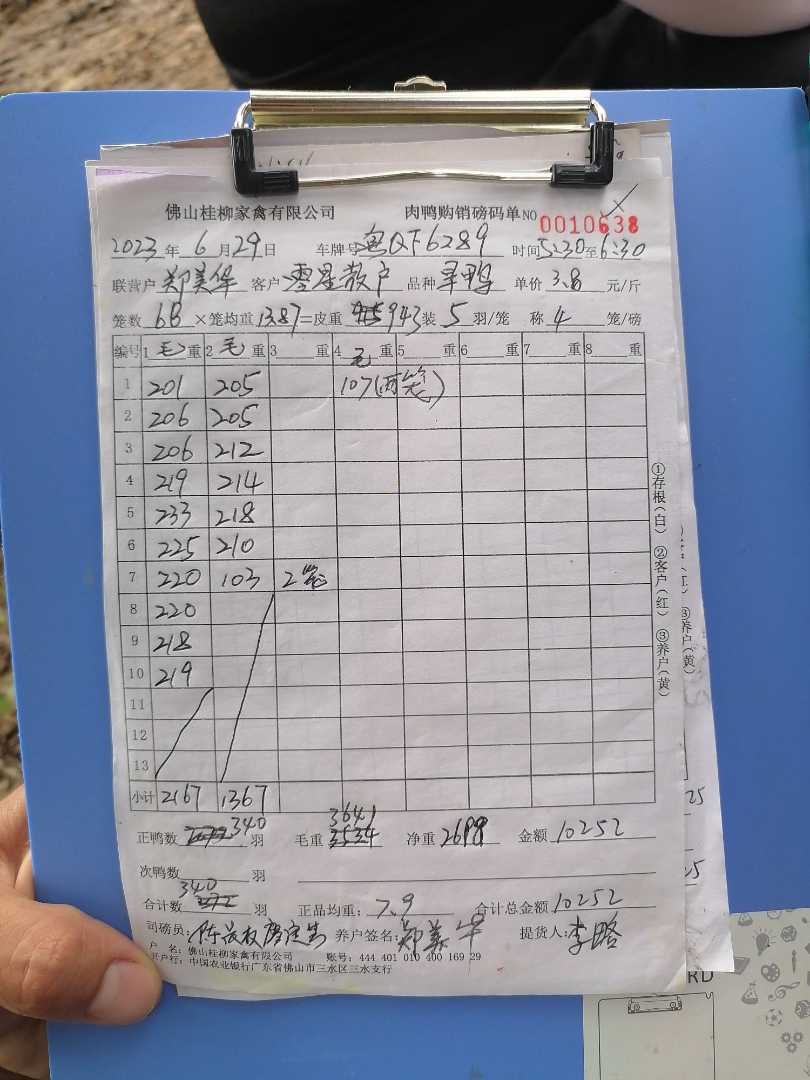 佛山桂柳家禽有限公司 肉鸭购销磅码单 NO 0010638
2023年6月29日 车牌号 粤QF6289 时间5:30至6:30
联营户 郑美华 客户 零星散户 品种 旱鸭 单价 3.8 元/斤
笼数 68 ×笼均重 13.87 =皮重 943 装 5 羽/笼 称 4 笼/磅
编号 1 毛 重 2 毛 重 3 重 4 毛 重 5 重 6 重 7 重 8 重
1 201 205 107(两笼)
2 206 205
3 206 212
4 219 214
5 233 218
6 225 210
7 220 103 2笼
8 220
9 218
10 219
11
12
13
小计 2167 1367
正鸭数 340 羽 毛重 3641 3534 净重 2698 金额 10252
次鸭数 羽
合计数 340 羽 正品均重: 7.9 合计总金额 10252
司磅员: 养户签名: 郑美华 提货人: 李略
户 名: 佛山桂柳家禽有限公司 账号: 444 401 010 400 169 29
开户行: 中国农业银行广东省佛山市三水区三水支行
①存根(白) ②客户(红) ③养户(黄)
③养户(黄)
25
25
RD